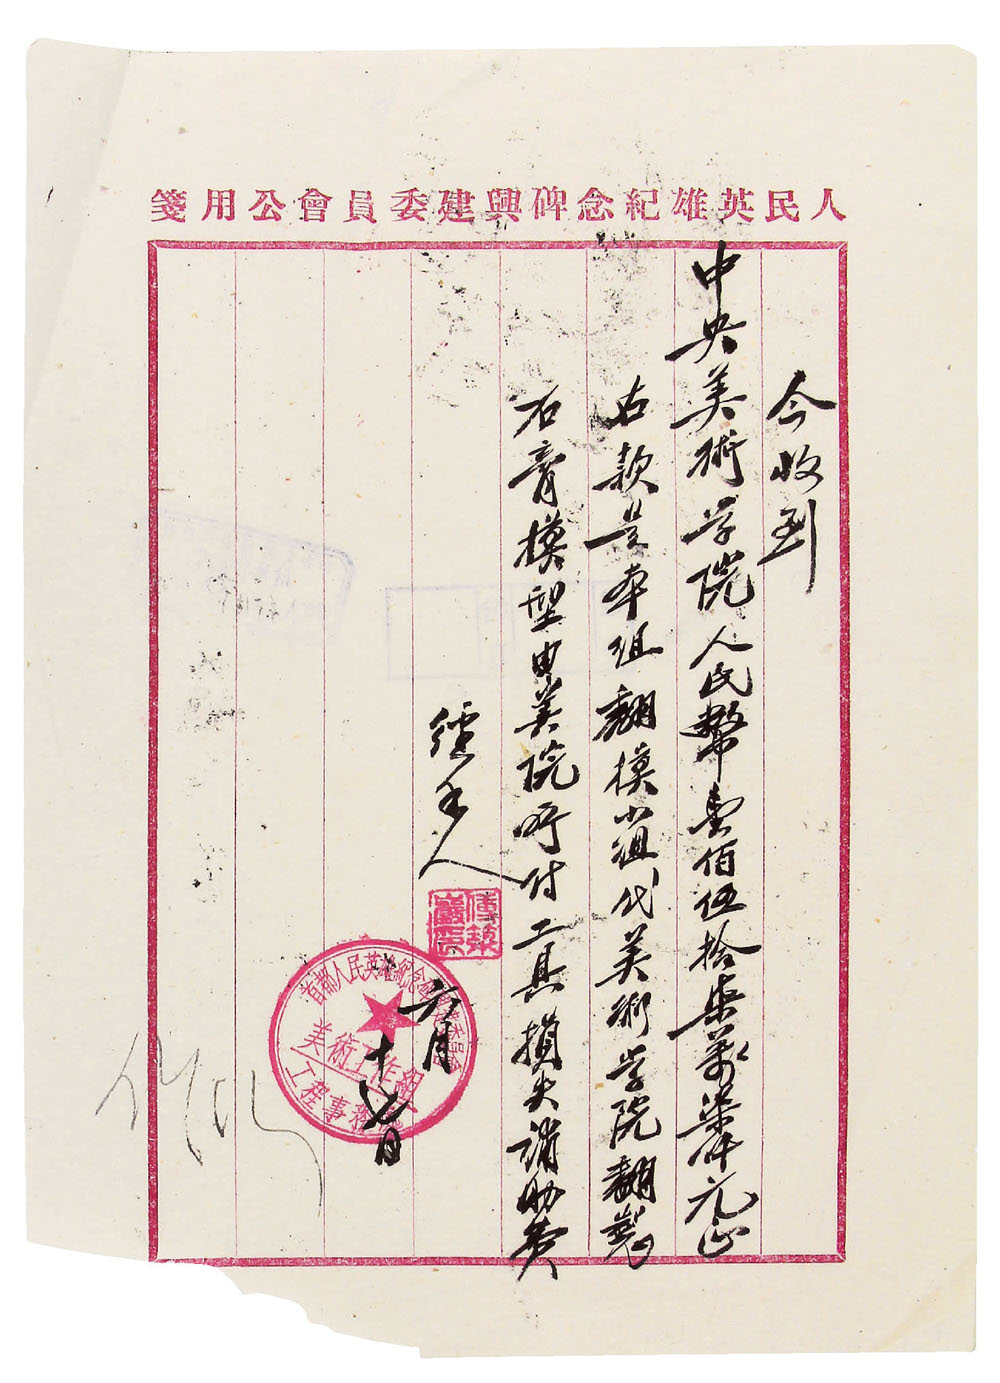 人民英雄紀念碑興建委員會公用箋
今收到
中央美術学院人民幣壹佰伍拾柒萬柒仟元正
右款是本组翻模小组代美術学院翻製
石膏模型由美院所付工具損失補助費
經手人
六月
十七日
首都人民英雄紀念碑興建委員會
美術工作組
工程事務處